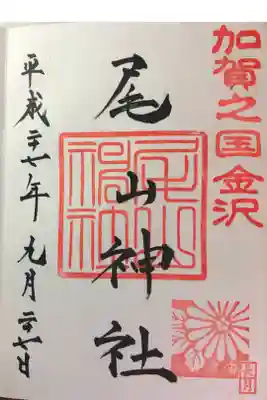 加賀之国金沢
尾山神社
尾山
神社
平成二十七年 九月二十七日